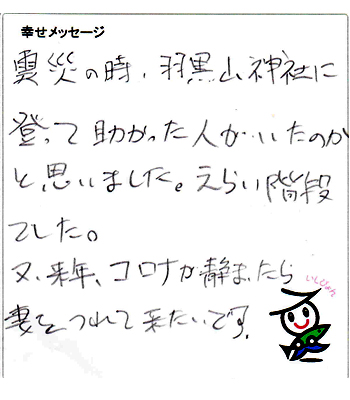 幸せメッセージ
震災の時、羽黒山神社に
登って助かった人がいたのか
と思いました。えらい階段
でした。
又、来年、コロナが静まったら
妻をつれて来たいです。